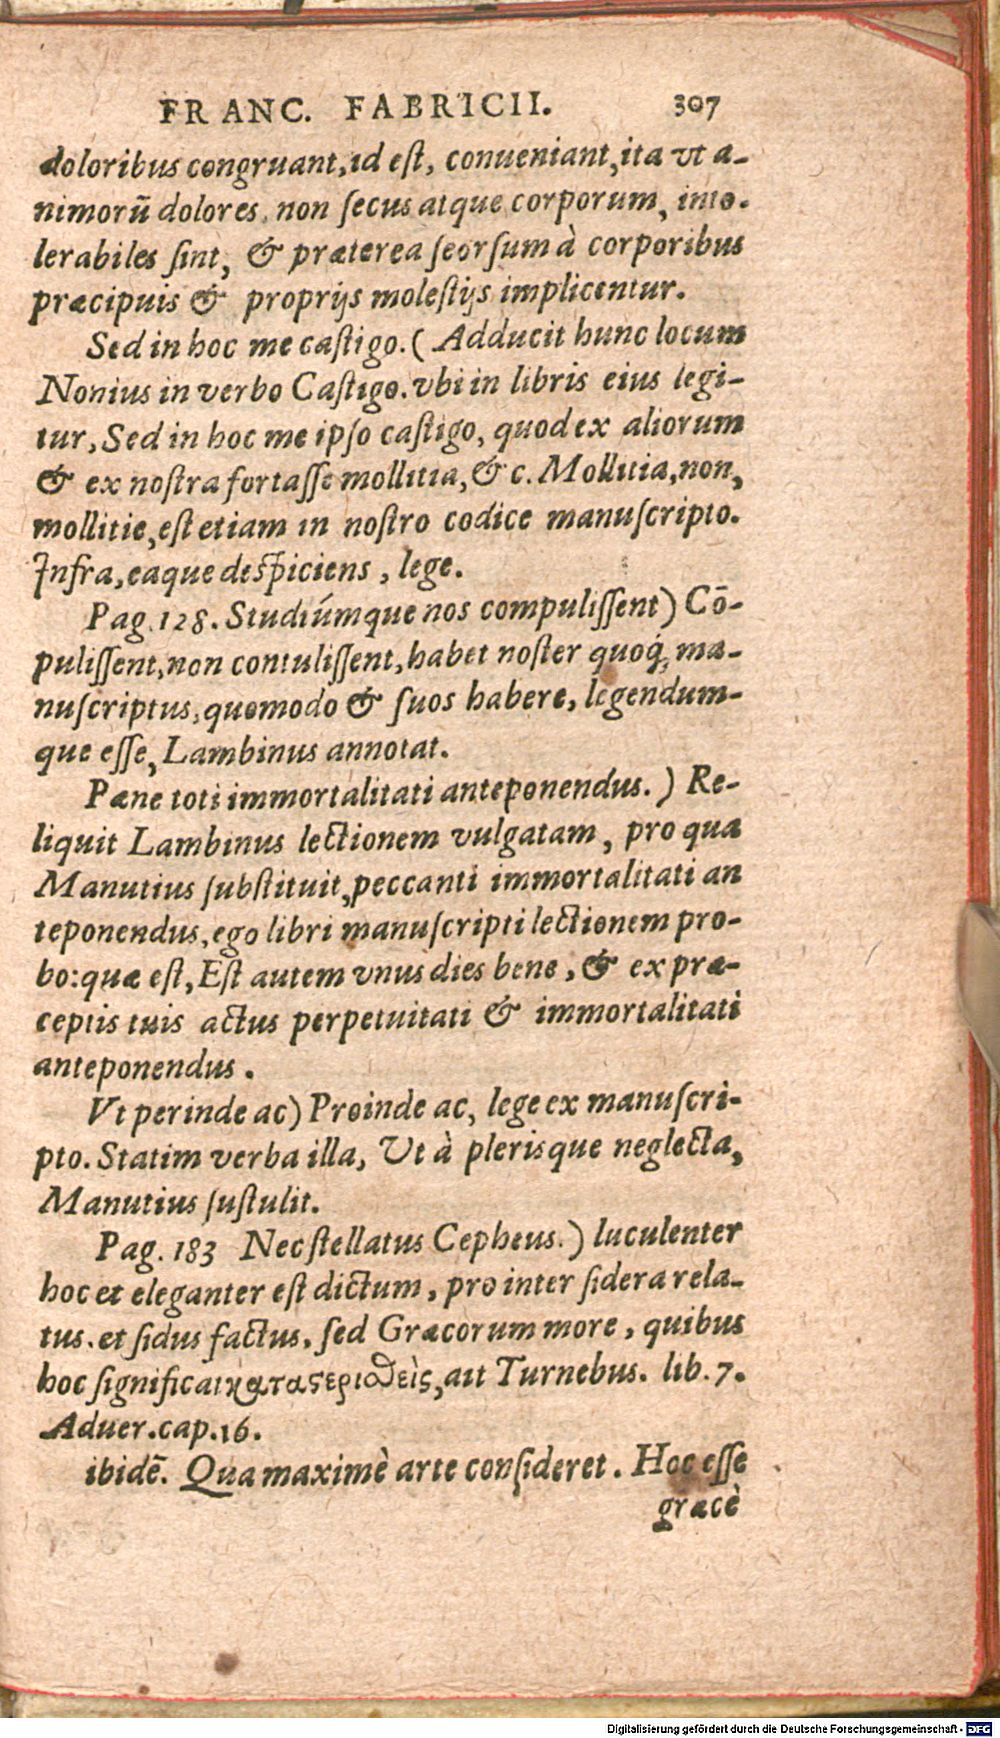 FRANC. FABRICII. 307
doloribus congruant, id est, conueniant, ita vt a-
nimorū dolores, non secus atque corporum, into-
lerabiles sint, & præterea seorsum à corporibus
præcipuis & proprijs molestijs implicentur.
Sed in hoc me castigo. ( Adducit hunc locum
Nonius in verbo Castigo. vbi in libris eius legi-
tur, Sed in hoc me ipso castigo, quod ex aliorum
& ex nostra fortasse mollitia, & c. Mollitia, non,
mollitie, est etiam in nostro codice manuscripto.
Infra, eaque despiciens, lege.
Pag. 128. Studiúmque nos compulissent) Cō-
pulissent, non contulissent, habet noster quoq; ma-
nuscriptus, quomodo & suos habere, legendum-
que esse, Lambinus annotat.
Pæne toti immortalitati anteponendus. ) Re-
liquit Lambinus lectionem vulgatam, pro qua
Manutius substituit, peccanti immortalitati an
teponendus, ego libri manuscripti lectionem pro-
bo: quæ est, Est autem vnus dies bene, & ex præ-
ceptis tuis actus perpetuitati & immortalitati
anteponendus.
Vt perinde ac) Proinde ac, lege ex manuscri-
pto. Statim verba illa, Ut à plerisque neglecta,
Manutius sustulit.
Pag. 183 Nec stellatus Cepheus. ) luculenter
hoc et eleganter est dictum, pro inter sidera rela-
tus. et sidus factus, sed Græcorum more, quibus
hoc significat καταστερισθεὶς, ait Turnebus. lib. 7.
Aduer. cap. 16.
ibidē. Qua maximè arte consideret. Hoc esse
græcè
Digitalisierung gefördert durch die Deutsche Forschungsgemeinschaft - DFG